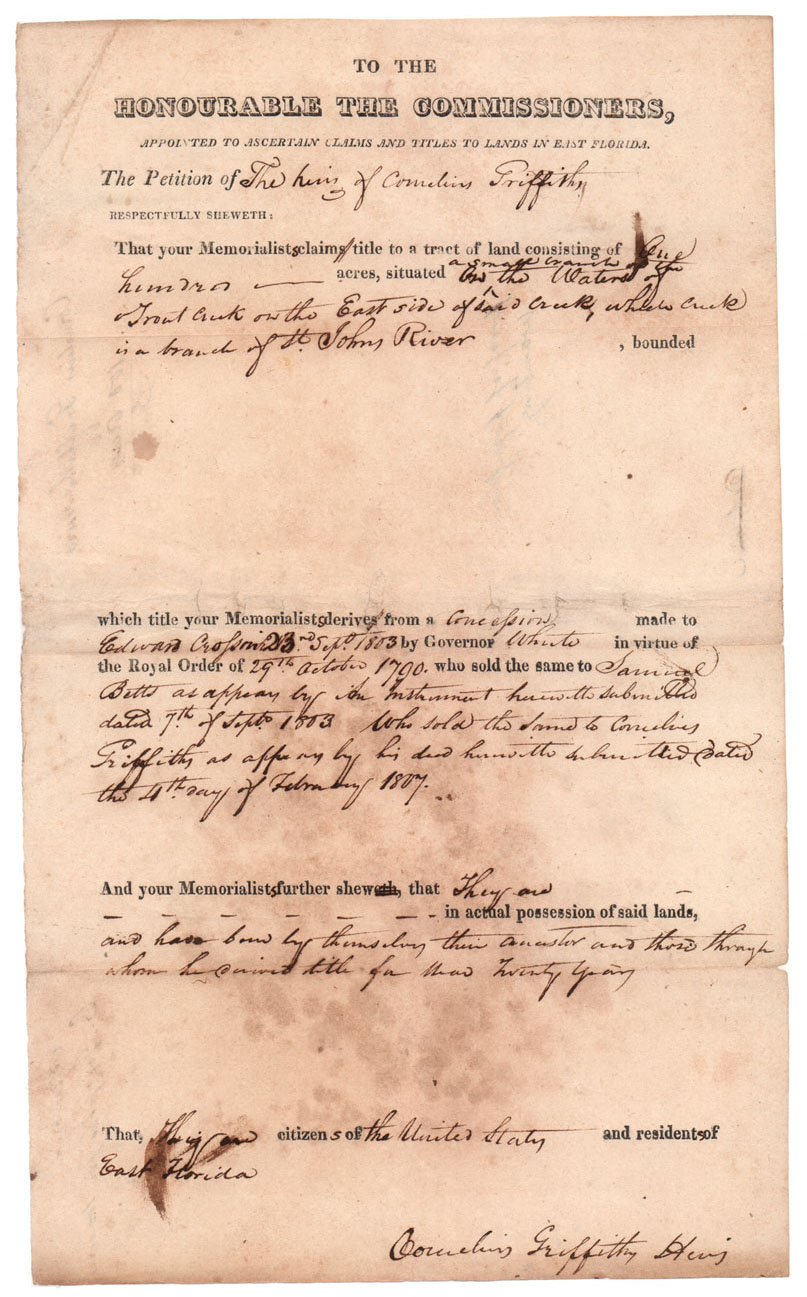 TO THE
HONOURABLE THE COMMISSIONERS,
APPOINTED TO ASCERTAIN CLAIMS AND TITLES TO LANDS IN EAST FLORIDA.
The Petition of The heirs of Cornelius Griffiths
RESPECTFULLY SHEWETH:
That your Memorialists claim title to a tract of land consisting of One
hundred — acres, situated a small branch of the
On the Waters of
Trout Creek on the East side of said Creek, which Creek
is a branch of St. Johns River , bounded
which title your Memorialists derive from a Concession made to
Edward Crossin 23rd Sept. 1803 by Governor White in virtue of
the Royal Order of 29th October 1790. who sold the same to Samuel
Betts as appears by An Instrument herewith submitted
dated 7th of Sept. 1803 Who sold the same to Cornelius
Griffiths as appears by his deed herewith submitted dated
the 4th day of February 1807.
And your Memorialists further shew, that They are –
– – – – – – - in actual possession of said lands,
and have been by themselves their ancestor and those through
whom he derived title for near Twenty Years
That, They are citizens of the United States and residents of
East Florida
Cornelius Griffiths Heirs